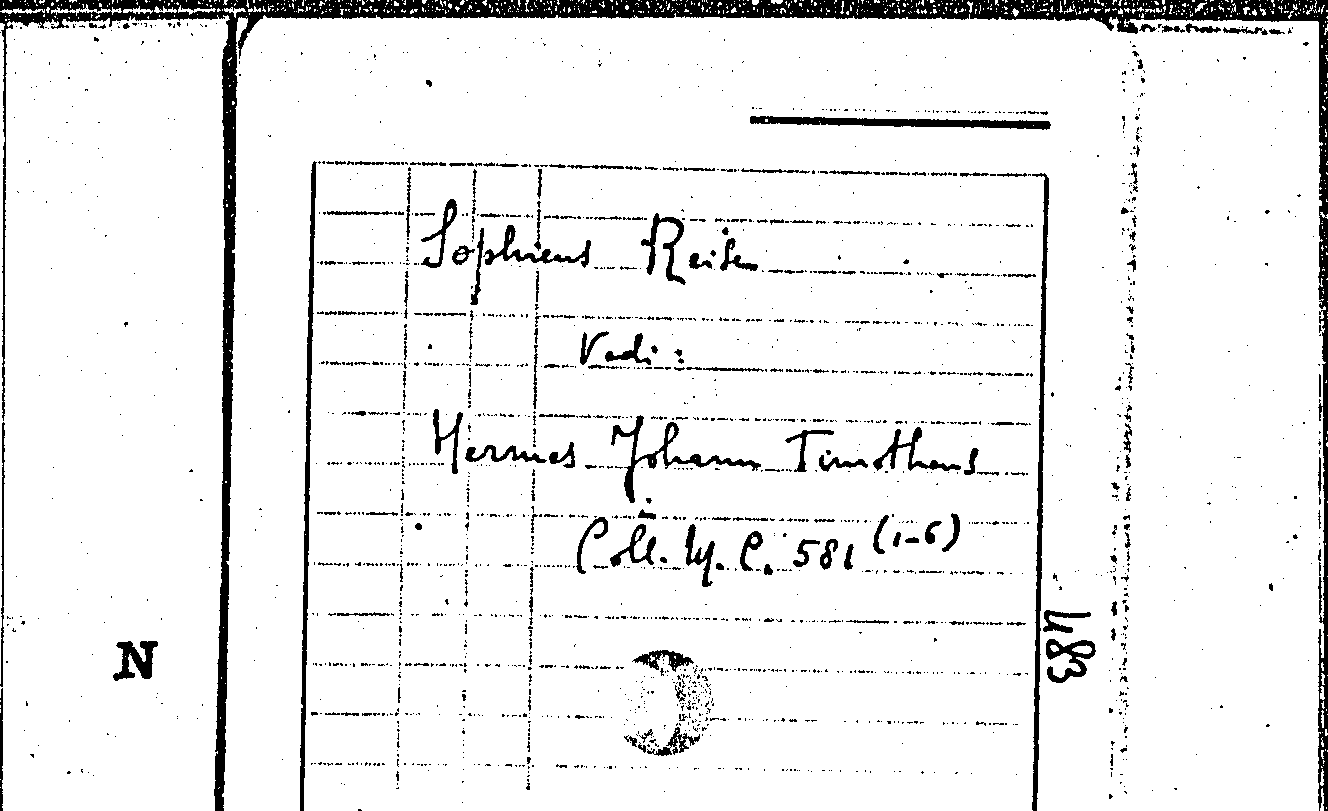 Sophiens Reisen
Vedi:
Hermes Johann Timotheus
Coll. It. C. 581 (1-6)
N
483